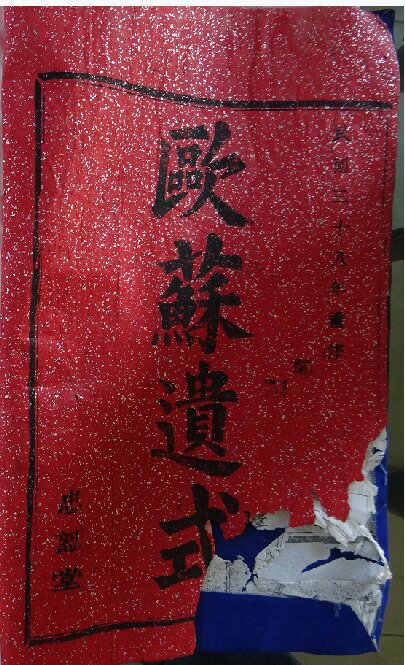 民國三十六年重修
歐蘇遺式
忠恕堂